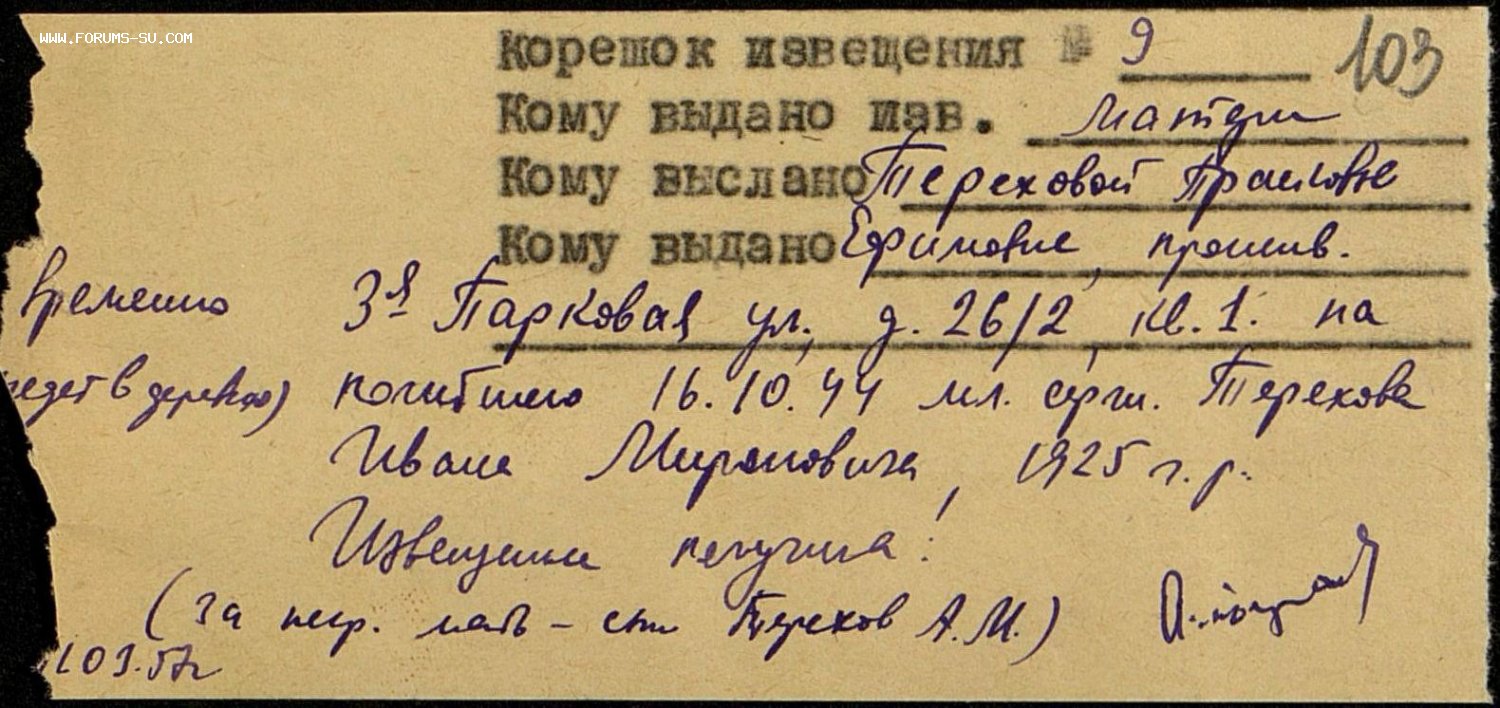 WWW.FORUMS-SU.COM
Корешок извещения № 9 103
Кому выдано изв. матери
Кому выслано Тереховой Прасковье
Кому выдано Ефимовне, прожив.
временно 3я Парковая ул., д. 26/2, кв. 1. на
едет в деревню) погибшего 16.10.44 мл. серж. Терехова
Ивана Мироновича, 1925 г.р.
Извещение получила:
(За негр. мать – сын Терехов А.М.)
03.57г